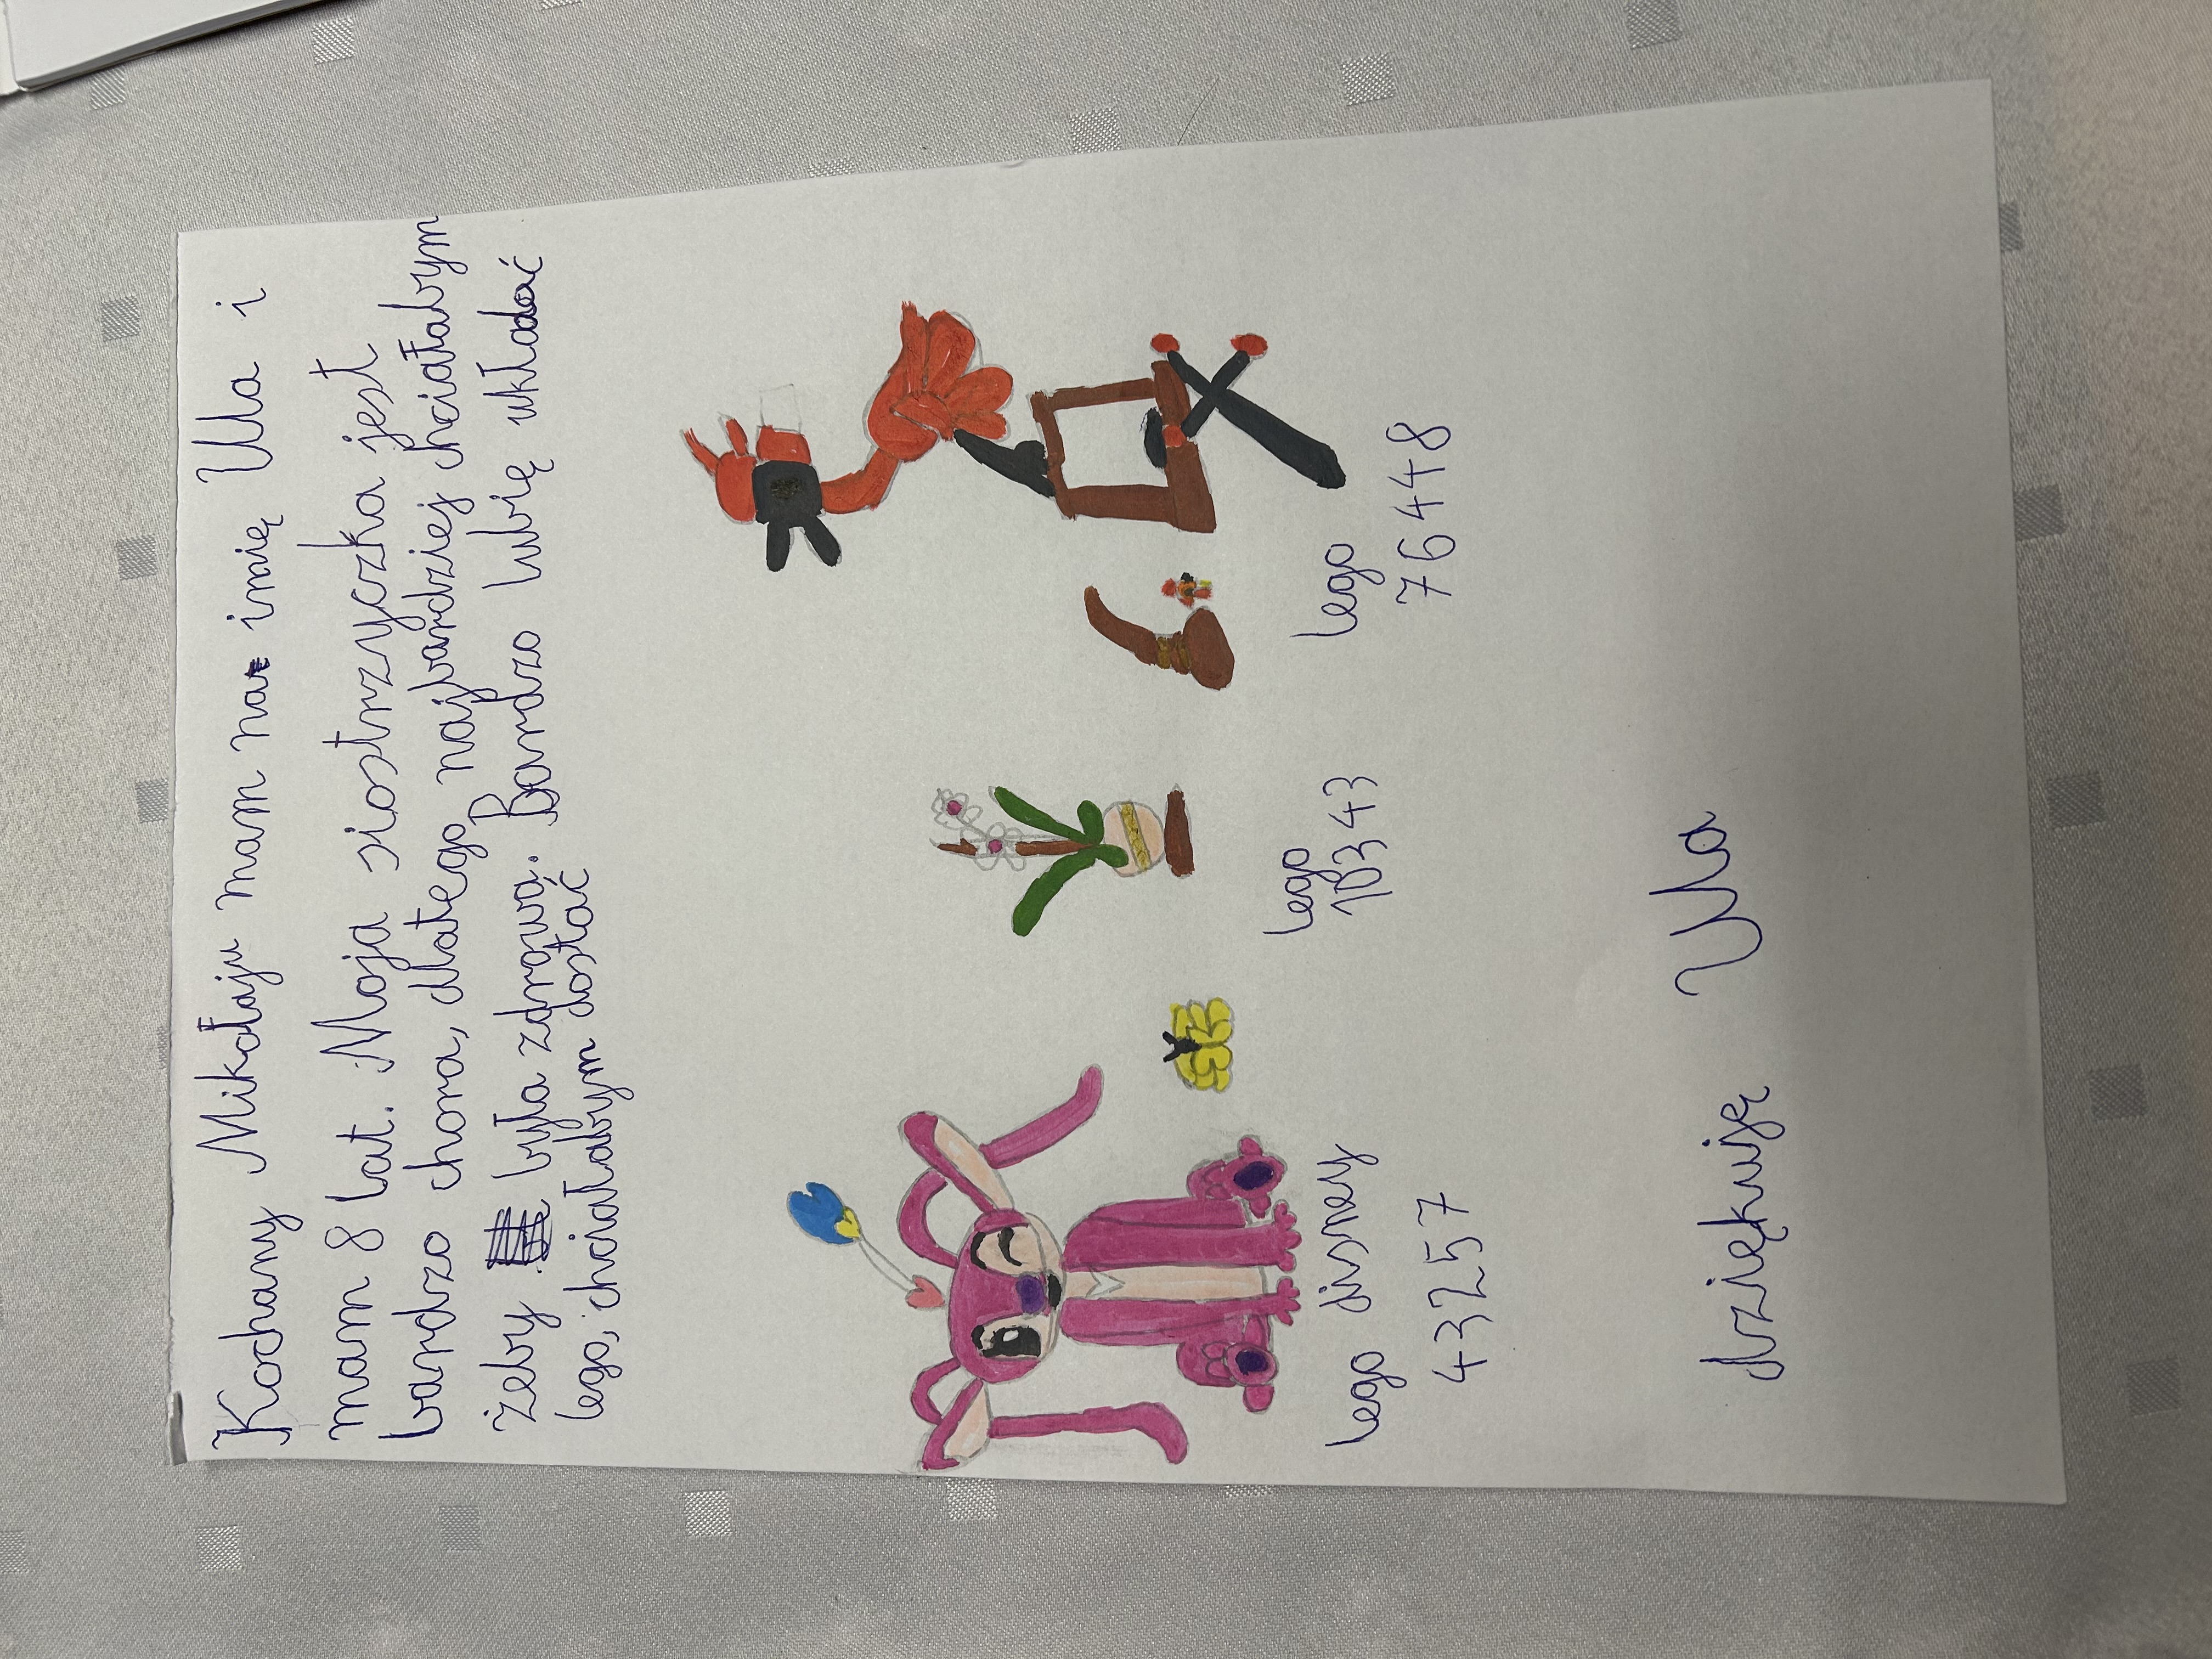 Kochany Mikołaju mam na imię Ula i
mam 8 lat. Moja siostrzyczka jest
bardzo chora, dlatego najbardziej chciałabym
żeby była zdrowa. Bardzo lubię układać
lego, chciałabym dostać
lego disney
43257
lego
10343
lego
76448
Dziękuję Ula